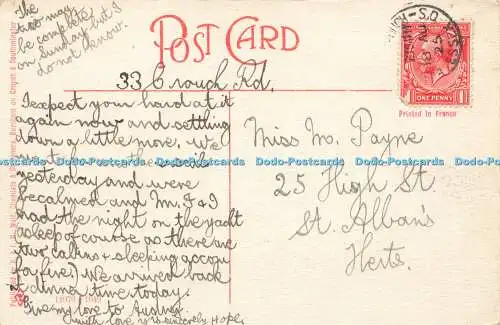 The
two may
be complete
on Sunday but I
do not know.
POST CARD
33 Crouch Rd.
I expect your hard at it
again now and settling
down a little more. We
went for the sail
yesterday and were
becalmed and Mr. F & I
had the night on the yacht
asleep of course as there are
two cabins & sleeping accom
for five.) We arrived back
at dinner time today.
Give my love to Audrey.
With love yrs sincerely Hope.
Miss M. Payne
25 High St.
St. Alban's
Herts.
ONE PENNY
Printed in France
Dodo-Postcards Dodo-Postcards Dodo-Postcards Dodo-Postcards Dodo-Postcards